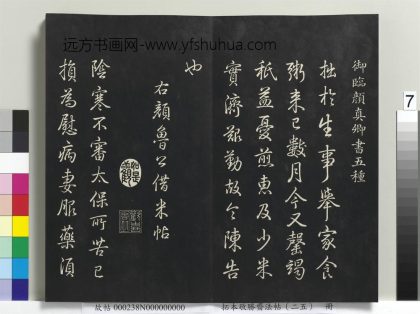 远方书画网-www.yfshuhua.com
御臨顏真卿書五種
拙於生事舉家食
粥来已數月今又罄竭
秖益憂煎惠及少米
實濟艱勤故令陳告
也
右顏魯公借米帖
陰寒不審太保所苦已
損為慰病妻服藥須
7
故帖 000238N000000000 拓本敬勝齋法帖(二五) 冊